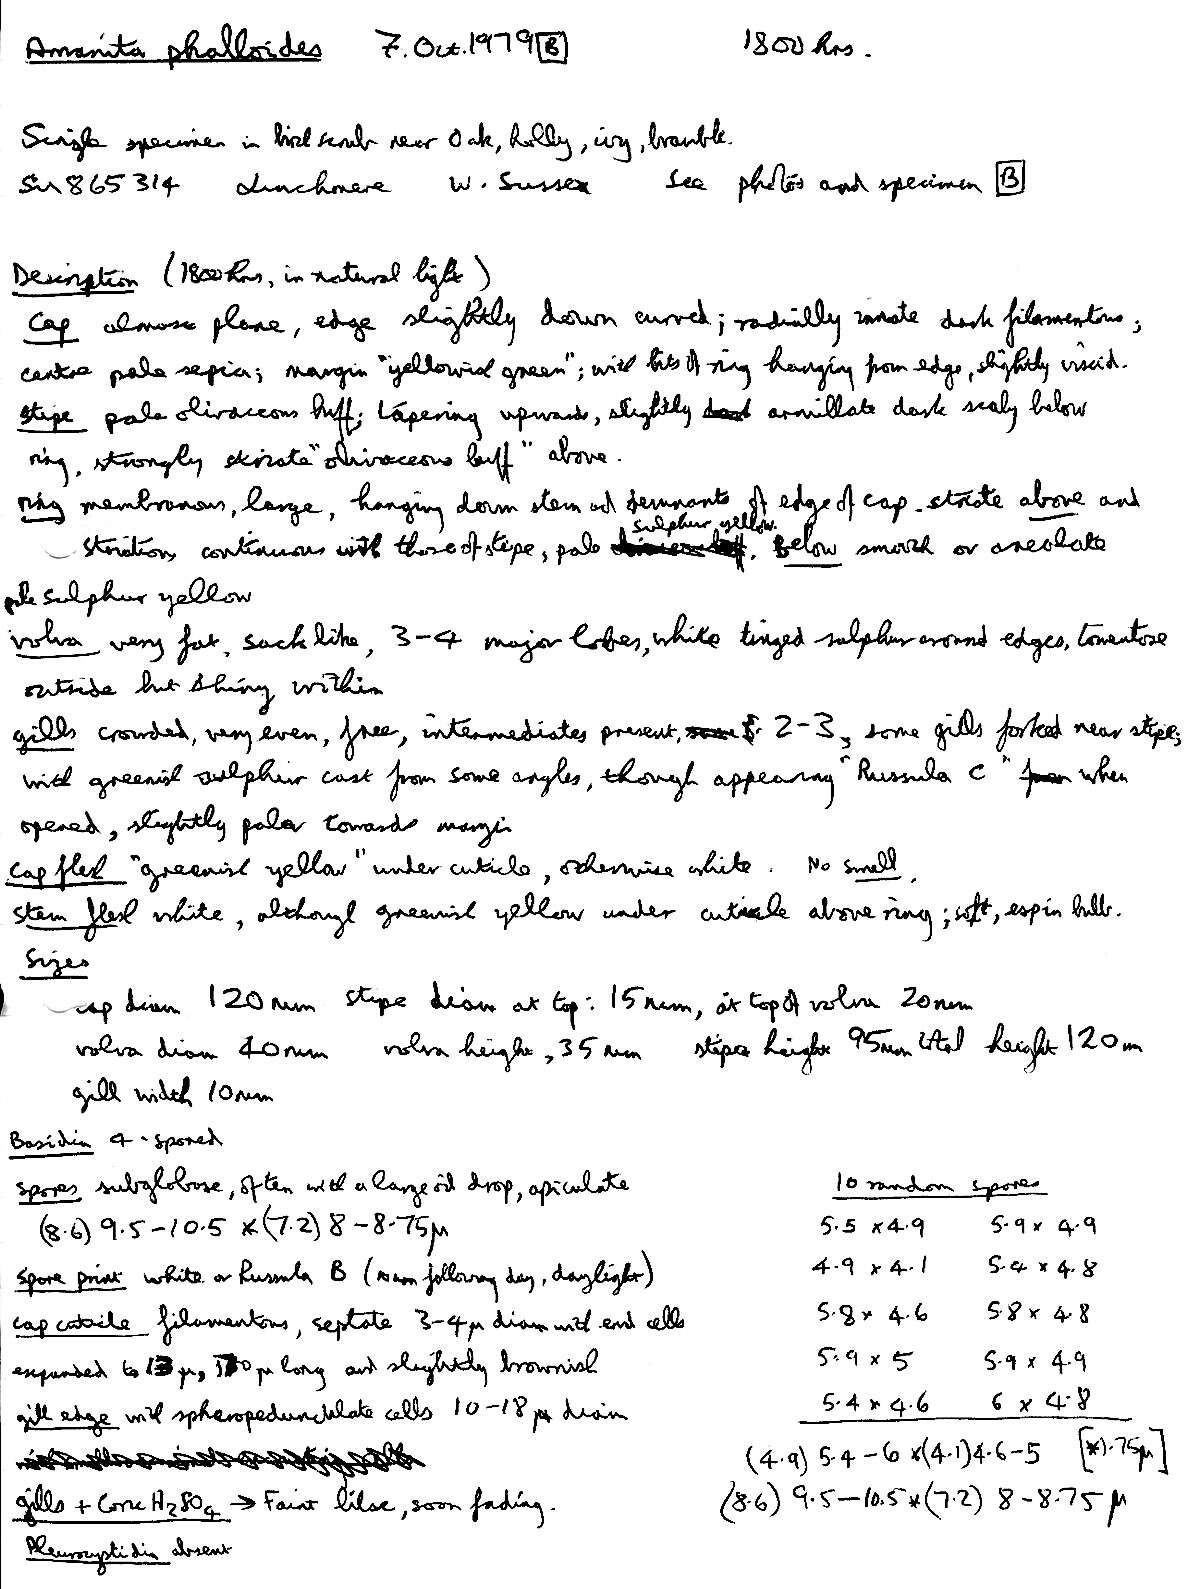 Amanita phalloides 7. Oct. 1979 [B] 1800 hrs.
Single specimen in birch scrub near Oak, holly, ivy, bramble.
SU 865314 Linchmere W. Sussex See photos and specimen [B]
Description (1800 hrs, in natural light)
Cap almost plane, edge slightly down curved; radially innate dark filamentous;
centre pale sepia; margin "yellowish green"; with bits of ring hanging from edge, slightly viscid.
stipe pale olivaceous buff; tapering upwards, slightly armillate dark scaly below
ring, strongly striate "olivaceous buff" above.
ring membranous, large, hanging down stem and remnants of edge of cap. striate above and
striations continuous with those of stipe, pale sulphur yellow. Below smooth or areolate
pale sulphur yellow
volva very fat, sack like, 3-4 major lobes, white tinged sulphur around edges, tomentose
outside but shiny within
gills crowded, very even, free, intermediates present, 2-3, some gills forked near stipe;
with greenish sulphur cast from some angles, though appearing "Russula C" when
opened, slightly paler towards margin
Cap flesh "greenish yellow" under cuticle, otherwise white. No smell.
Stem flesh white, although greenish yellow under cuticle above ring; soft, esp in bulb.
Sizes
cap diam 120mm stipe diam at top: 15mm, at top of volva 20mm
volva diam 40mm volva height, 35mm stipe height 95mm total height 120m
gill width 10mm
Basidia 4-spored
Spores subglobose, often with a large oil drop, apiculate
(8.6) 9.5-10.5 x (7.2) 8-8.75µ
Spore print white or Russula B (noon following day, daylight)
cap cuticle filamentous, septate 3-4µ diam with end cells
expanded to 13µ, 170µ long and slightly brownish
gill edge with spheropedunculate cells 10-18µ diam
gills + Conc H2SO4 → Faint lilac, soon fading.
Pleurocystidia absent
10 random spores
5.5 x 4.9 5.9 x 4.9
4.9 x 4.1 5.4 x 4.8
5.8 x 4.6 5.8 x 4.8
5.9 x 5 5.9 x 4.9
5.4 x 4.6 6 x 4.8
(4.9) 5.4-6 x (4.1) 4.6-5 [x 1.75µ]
(8.6) 9.5-10.5 x (7.2) 8-8.75 µ